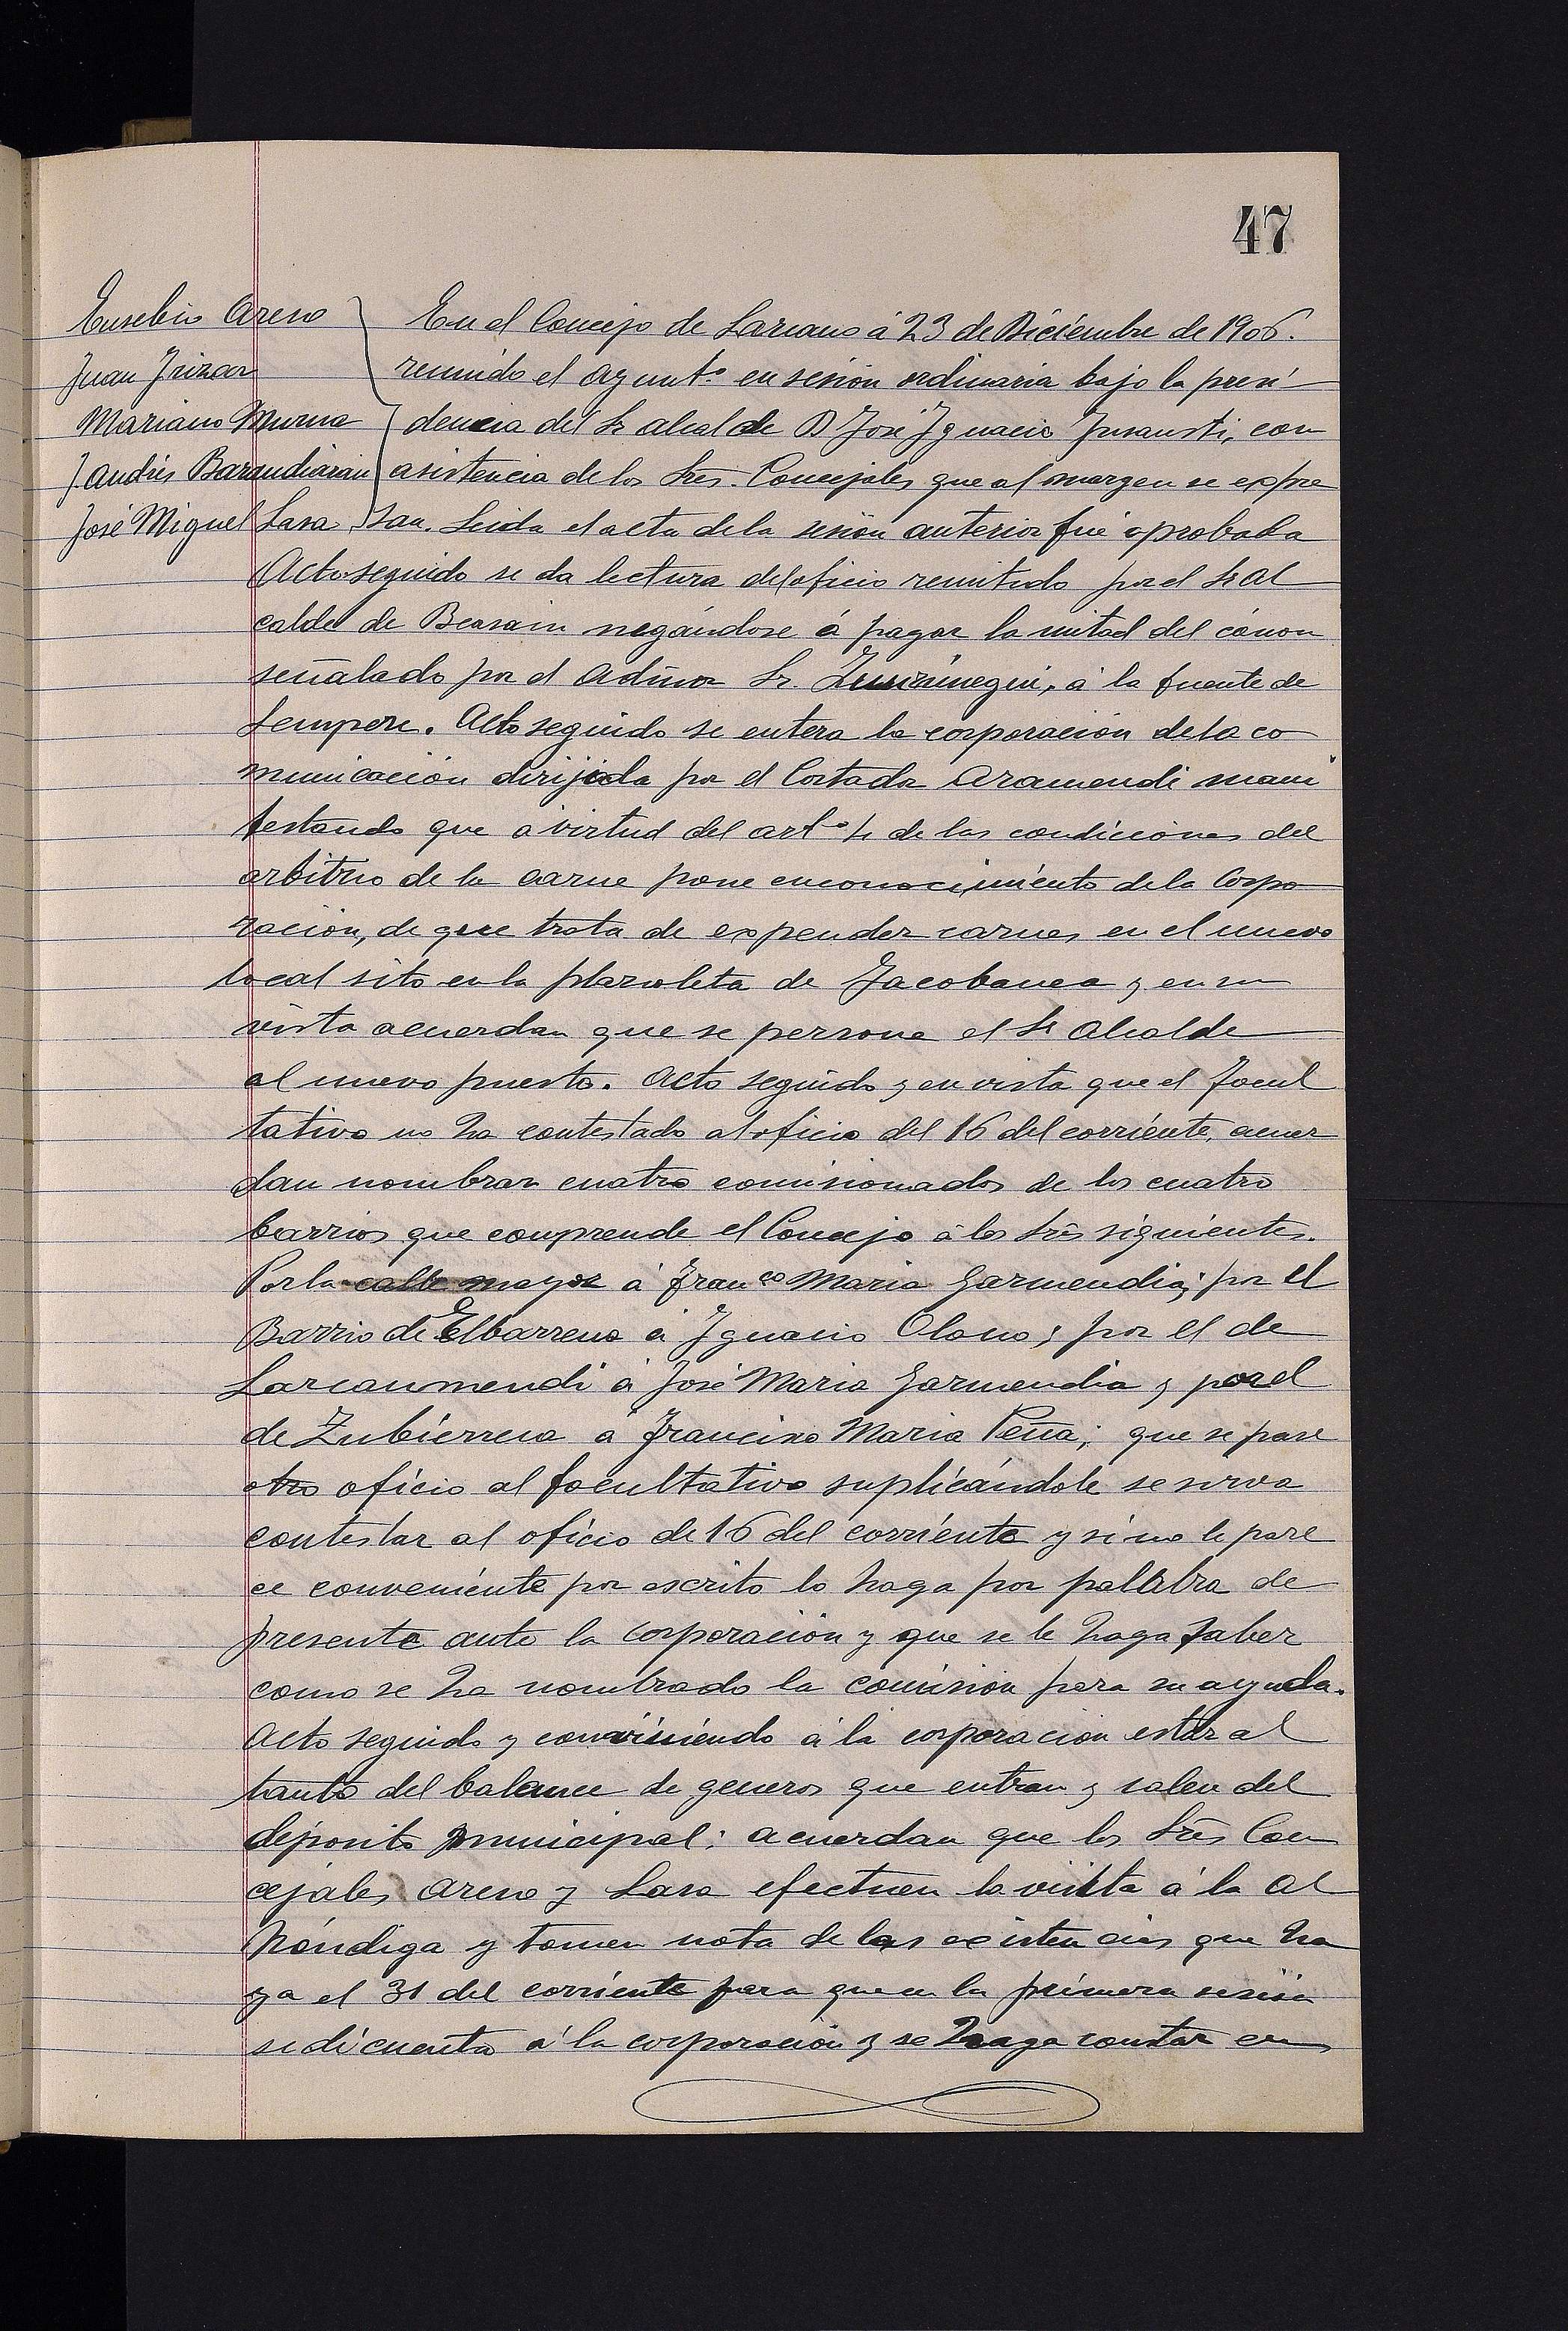 47
Eusebio Areno
Juan Irizar
Mariano Murua
J. Andrés Barandiarán
José Miguel Lasa
En el Concejo de Lazcano á 23 de Diciembre de 1906.
reunido el ayunt.º en sesión ordinaria bajo la presi
dencia del Sr alcalde D José Ignacio Insausti, con
asistencia de los Sres. Concejales que al margen se expre
san. Leida el acta de la sesión anterior fué aprobada
Acto seguido se da lectura del oficio remitido por el Sr Al
calde de Beasain negándose á pagar la mitad del cánon
señalado por el Admor Sr. , á la fuente de
Sempere. Acto seguido se entera la corporación de la co
municación dirijida por el Cortador Aramendi mani
festando que a virtud del artº 4 de las condiciones del
arbitrio de la carne pone en conocimiento de la Corpo
ración, de que trata de expender carnes en el nuevo
local sito en la plazoleta de Jacobanea y en su
vista acuerdan que se persone el Sr Alcalde
al nuevo puesto. Acto seguido y en vista que el Facul
tativo no ha contestado al oficio del 16 del corriente, acuer
dan nombrar cuatro comisionados de los cuatro
barrios que comprende el Concejo á los Srès siguientes.
Por la calle mayor á Franco Maria Garmendia; por el
Barrio de Elbarrena á Ignacio Olano; por el de
Lazcanomendi á José Maria Garmendia y por el
de Zubierreca á Francisco Maria Peña; que se pase
otro oficio al facultativo suplicándole se sirva
contestar al oficio de 16 del corriente y si no le pare
ce conveniente por escrito lo haga por palabra de
presente ante la corporación y que se le haga saber
como se ha nombrado la comisión para su ayuda.
Acto seguido y conviniendo á la corporación estar al
tanto del balance de generos que entran y salen del
déposito municipal; acuerdan que los Srès Con
cejales Areno y Lasa efectuen la visita á la Al
hóndiga y tomen nota de las existencias que ha
ya el 31 del corriente para que en la primera sesión
se dé cuenta á la corporación y se haga constar en